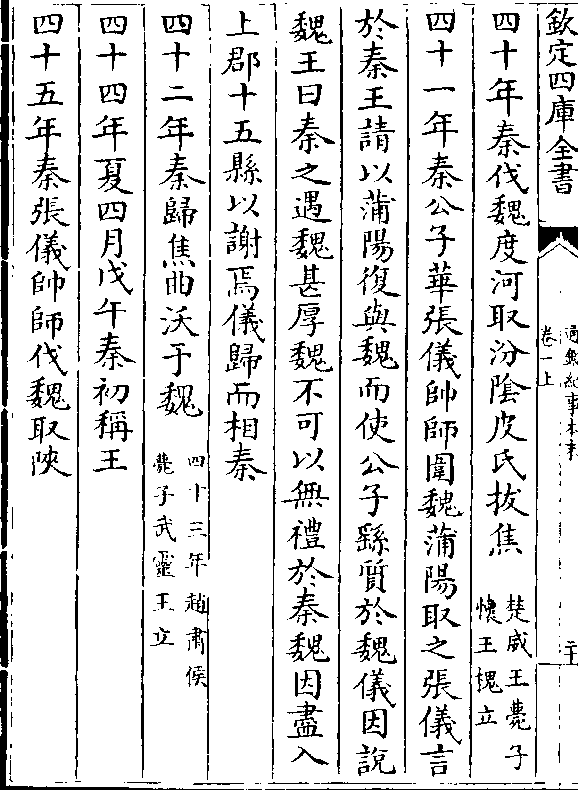 欽定四庫全書
通鑑紀事本末
卷一上
二十
四十年秦伐魏度河取汾陰皮氏拔焦
楚威王薨子
懷王槐立
四十一年秦公子華張儀帥師圍魏蒲陽取之張儀言
於秦王請以蒲陽復與魏而使公子繇質於魏儀因說
魏王曰秦之遇魏甚厚魏不可以無禮於秦魏因盡入
上郡十五縣以謝焉儀歸而相秦
四十二年秦歸焦曲沃于魏
四十三年趙肅侯
薨子武靈王立
四十四年夏四月戊午秦初稱王
四十五年秦張儀帥師伐魏取陝